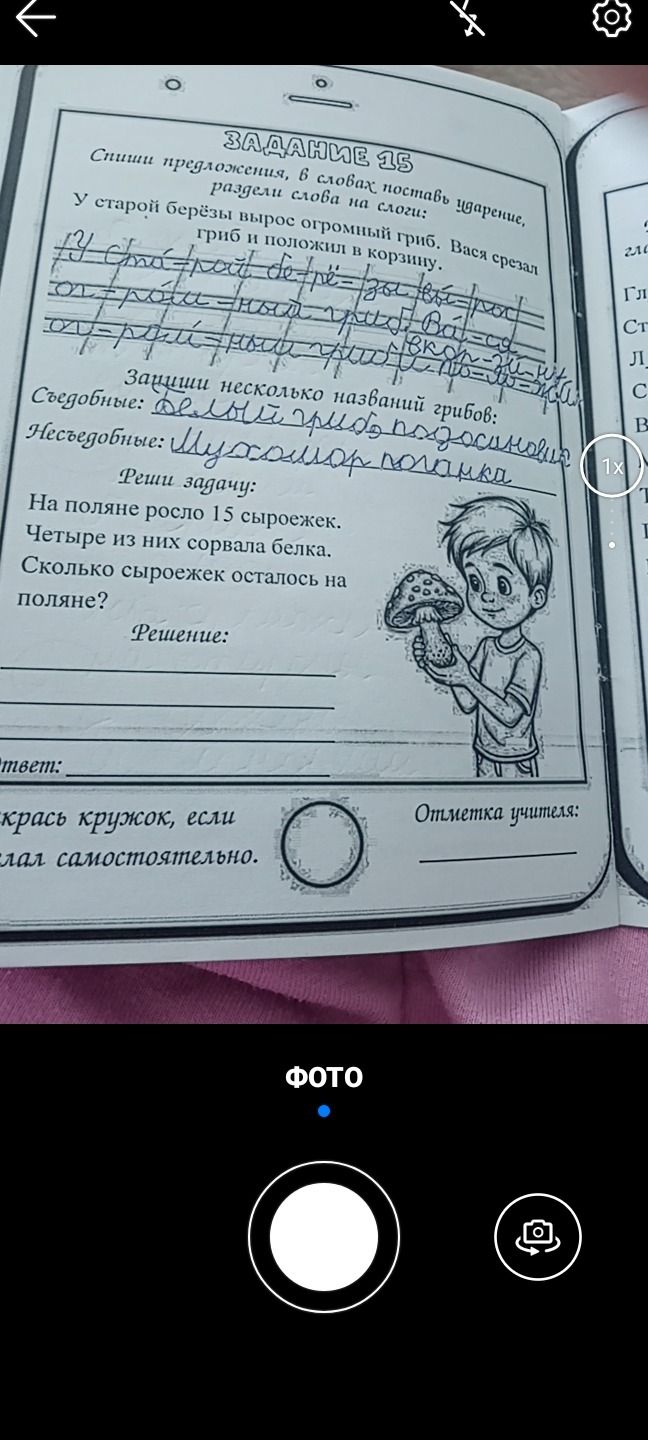 ЗАДАНИЕ 15
Спиши предложения, в словах поставь ударение,
раздели слова на слоги:
У старой берёзы вырос огромный гриб. Вася срезал
гриб и положил в корзину.
У ста́=рой бе=рё=зы вы́=рос
ог=ро́м=ный гриб. Ва́=ся
вкор-зи-ну
ог=ром=ный гриб и по=ло=жил
Запиши несколько названий грибов:
Съедобные: Белый гриб, подосиновик
Несъедобные: Мухомор поганка
Реши задачу:
На поляне росло 15 сыроежек.
Четыре из них сорвала белка.
Сколько сыроежек осталось на
поляне?
Решение:
твет:
крась кружок, если
лал самостоятельно.
Отметка учителя:
гла
Гл
Ст
Л
С
В
1x
ФОТО